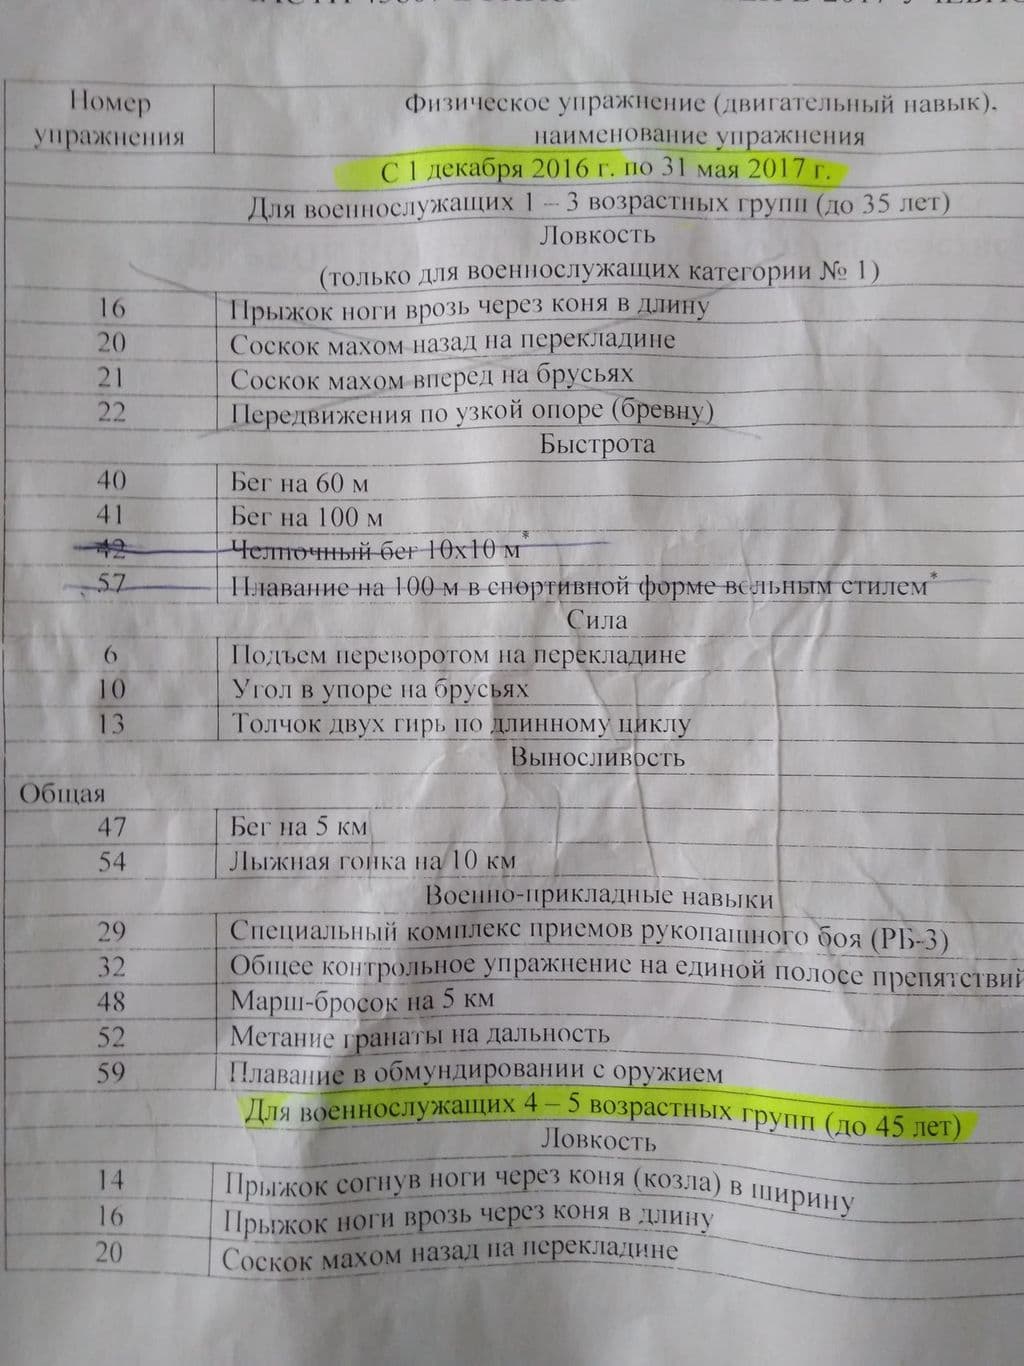 Номер
упражнения
Физическое упражнение (двигательный навык).
наименование упражнения
С 1 декабря 2016 г. по 31 мая 2017 г.
Для военнослужащих 1 – 3 возрастных групп (до 35 лет)
Ловкость
(только для военнослужащих категории № 1)
16 Прыжок ноги врозь через коня в длину
20 Соскок махом назад на перекладине
21 Соскок махом вперед на брусьях
22 Передвижения по узкой опоре (бревну)
Быстрота
40 Бег на 60 м
41 Бег на 100 м
42 Челночный бег 10х10 м*
57 Плавание на 100 м в спортивной форме вольным стилем*
Сила
6 Подъем переворотом на перекладине
10 Угол в упоре на брусьях
13 Толчок двух гирь по длинному циклу
Выносливость
Общая
47 Бег на 5 км
54 Лыжная гонка на 10 км
Военно-прикладные навыки
29 Специальный комплекс приемов рукопашного боя (РБ-3)
32 Общее контрольное упражнение на единой полосе препятствий
48 Марш-бросок на 5 км
52 Метание гранаты на дальность
59 Плавание в обмундировании с оружием
Для военнослужащих 4 – 5 возрастных групп (до 45 лет)
Ловкость
14 Прыжок согнув ноги через коня (козла) в ширину
16 Прыжок ноги врозь через коня в длину
20 Соскок махом назад на перекладине